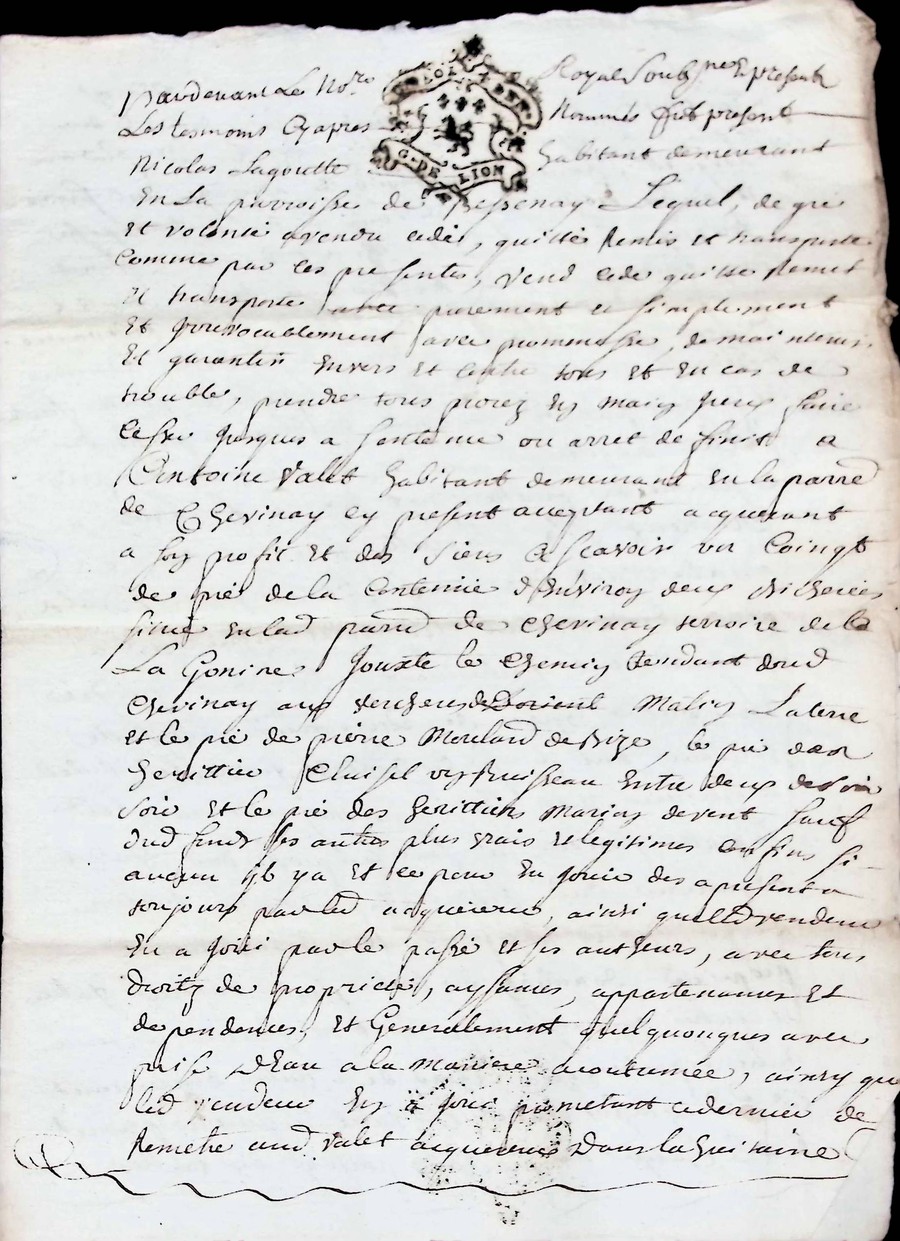 Pardevant Le No.re Royal Soubs.nes Et present
Les tesmoins Cy apres Nommés fut present
Nicolas Lagoutte habitant demeurant
G. DE LION
En La parroisse de Bessenay Lequel, de gré
Et volonté a vendu cedé, quitté Remis et transporté
Comme par ces presentes, vend cede quitte remet
Et transporte purement et simplement
Et Irrevocablement avec promesse, de maintenir
Et garantir Envers Et Contre tous Et En cas de
trouble, prendre tous procez En main Iceux faire
Cesser Jusques a sentence ou arret definit a
Antoine Valet habitant demeurant En la parre
de Chevinay cy present acceptant acquerant
a son profit Et des siens Ascavoir un Coingt
de pré de la Contenue d'Environ deux bicherées
situé En lad parre de Chevinay terroire de la
La Gonine Jouxte le Chemin tendant dud
Chevinay aux Matin Laterre
Et le pré de pierre Moulard de Bize, le pré
heritties Cluisel un Ruisseau Entre deux de
soir Et le pré des heritties Marion devent sauf
dud fonds ses autres plus vrais Et legitimes confins si
aucun Il y a Et ce pour En Jouir des a present a
toujours par led acquereur, ainsi que led vendeur
En a Joui par le passé Et ses autheurs, avec tous
droitz de proprieté, aysances, appartenances Et
dependences, Et Generalement quelquonques avec
prise d'Eau a la maniere acoutumée, ainsy que
led vendeur En a Joui prometant ce dernier de
Remetre aud Valet acquereur Dans la huitaine